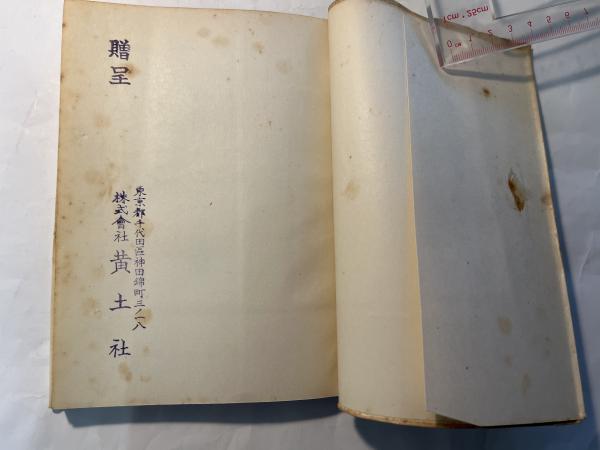 贈呈
東京都千代田區神田錦町三ノ一八
株式會社 黄土社
1cm .25cm
0 1 2 3 4 5 6 7